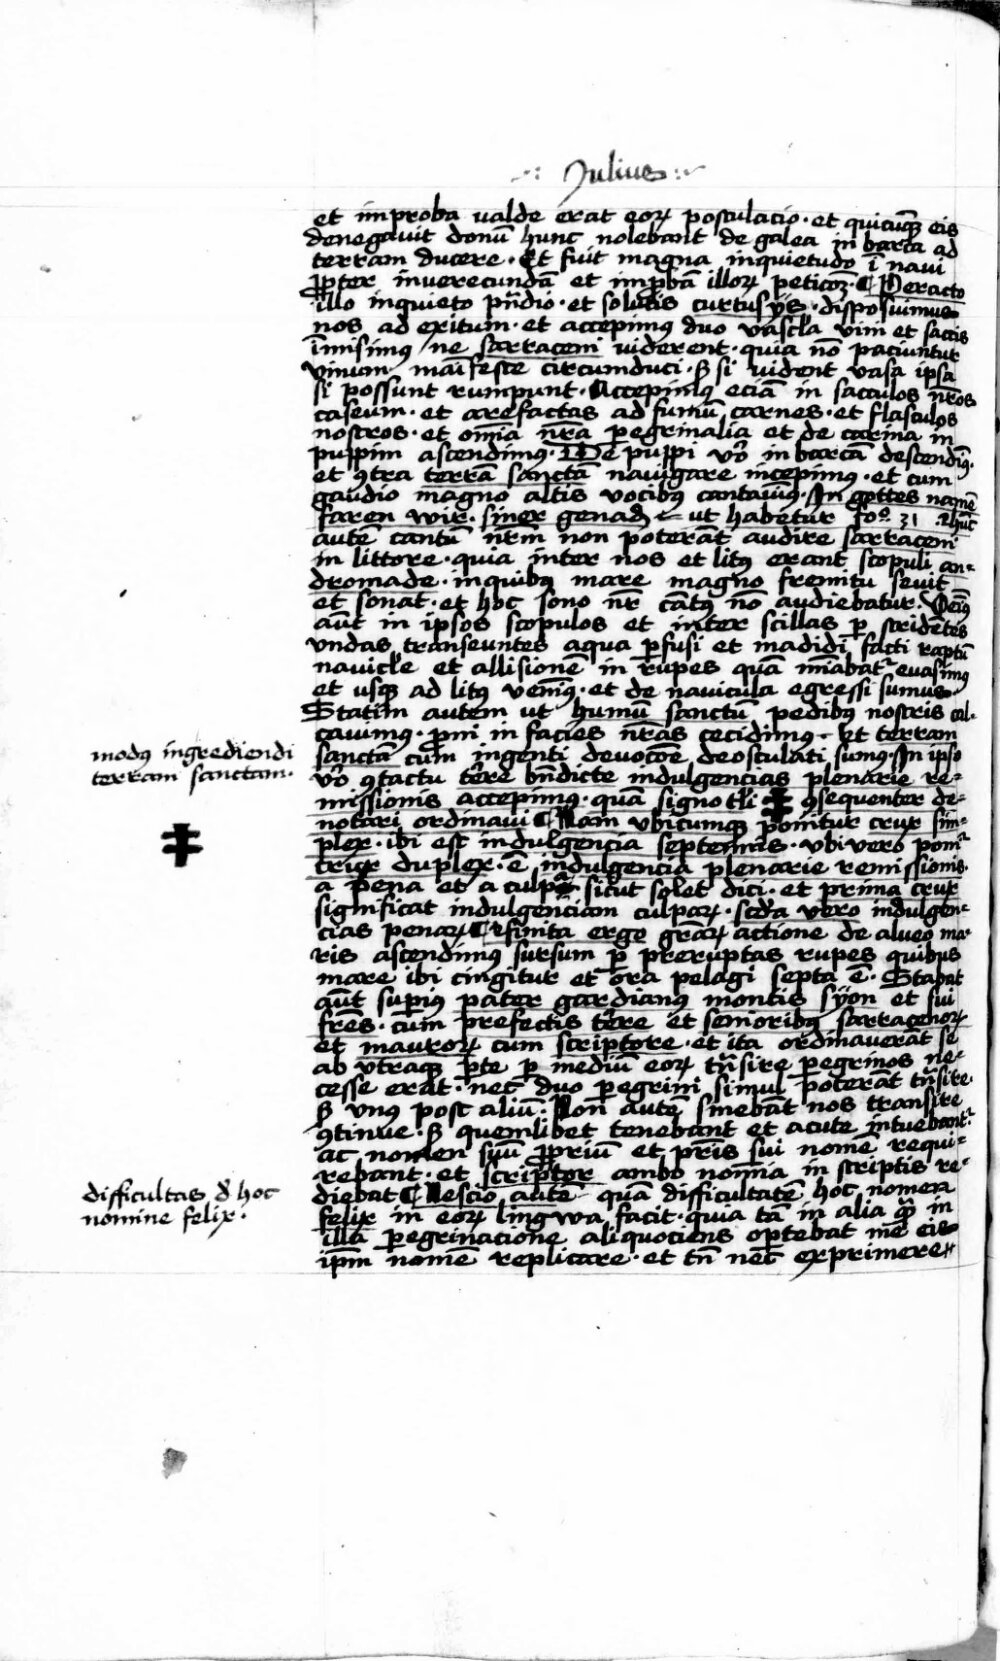 Julius
et improba valde erat eorꝝ postulacio · et quicūqꝫ eis
denegavit donū hunc nolebant de galea in barca ad
terram ducere · Et fuit magna inquietudo ī navi
ꝓpter inverecundā et impbā illorꝝ peticōꝫ · ¶ Peracto
illo inquieto pn̄dio · et solutis curtusijs · disposuimus
nos ad exitum · et accepimꝰ duo vascl'a vini et saccis
īmisimꝰ ne sarraceni viderent · quia nō paciuntur
vinum maīfeste circumduci · sꝫ si vident vasa ipsa
si possunt rumpunt · Accepimꝰ eciā in sacculos nr̄os
caseum · et arefactas ad fumū carnes · et flasculos
nostros · et om̄ia nr̄a ꝑegrinalia et de carina in
puppim ascendimꝰ · De puppi vo᷒ in barcā descendimꝰ ·
et ꝯtra terrā sanctā navigare incepimꝰ · et cum
gaudio magno altis vocibꝰ cantavimꝰ · In gottes namē
faren wir · siner genadꝫ ut habetur fo° 31 · Hūc
autē cantū nr̄m non poterāt audire sarraceni
in littore · quia inter nos et litꝰ erant scopuli an=
dromade · in quibꝰ mare magno fremitu sevit
et sonat · et hoc sono nr̄ cātꝰ nō audiebatur ·
aūt in ipsos scopulos et inter scillas ꝑ stridētes
vndas transeuntes aqua ꝑfusi et madidi facti raptū
navicl'e et allisione in rupes quā miābatᷣ evasimꝰ
et usqꝫ ad litꝰ venimꝰ · et de navicula egressi sumus ·
Statim autem ut humū sanctū pedibꝰ nostris cal=
cavimꝰ · pni in facies nr̄as cecidimꝰ · Et terram
sanctā cum ingenti devocōe deosculati sumꝰ · In ipso
vo᷒ ꝯtactu tere bn̄dicte indulgencias plenarie re=
missionis accepimꝰ · quā signo tli ‡ ꝯsequenter de=
notari ordinavi ¶ Nam vbicumqꝫ ponitur crux sim=
plex · ibi est indulgencia septennis · vbi vero ponitᷣ
crux duplex · ē indulgencia plenarie remissionis
a pena et a culpa sicut solet dici · et prima crux
significat indulgenciam culparꝝ · scd̄a vero indulgen=
cias penarꝝ ¶ Finita ergo grāꝝ actione de alveo ma=
ris ascendimꝰ sursum ꝑ preruptas rupes quibus
mare ibi cingitur et ora pelagi septa ē · Stabat
aūt supiꝰ pater gardianꝰ montis syon et sui
fr̄es · cum prefectis tere et senioribꝰ sarracenorꝝ
et maurorꝝ cum scriptore · et ita ordinaverāt se
ab vtraqꝫ ꝑte ꝑ mediū eorꝝ trāsire ꝑegrinos ne=
cesse erat · nec duo ꝑegrini simul poterāt trāsire ·
sꝫ vnꝰ post aliū · Non autē sinebāt nos transire
ꝯtinue · sꝫ quemlibet tenebant et acute intuebantᷣ
ac nomen suū ꝓpriū et pr̄is sui nomē requi=
rebant · et scriptor ambo nomina in scriptis re=
diebat ¶ Nescio autē quā difficultatē hoc nomen
felix in eorꝝ lingwa facit · quia tā in alia qꝫ in
illa ꝑegrinacione aliquociens oportebat me eis
ipm̄ nomē replicare · et tn̄ nec exprimere
modꝰ ingrediendi
terram sanctam ·
‡
difficultas d' hoc
nomine felix ·